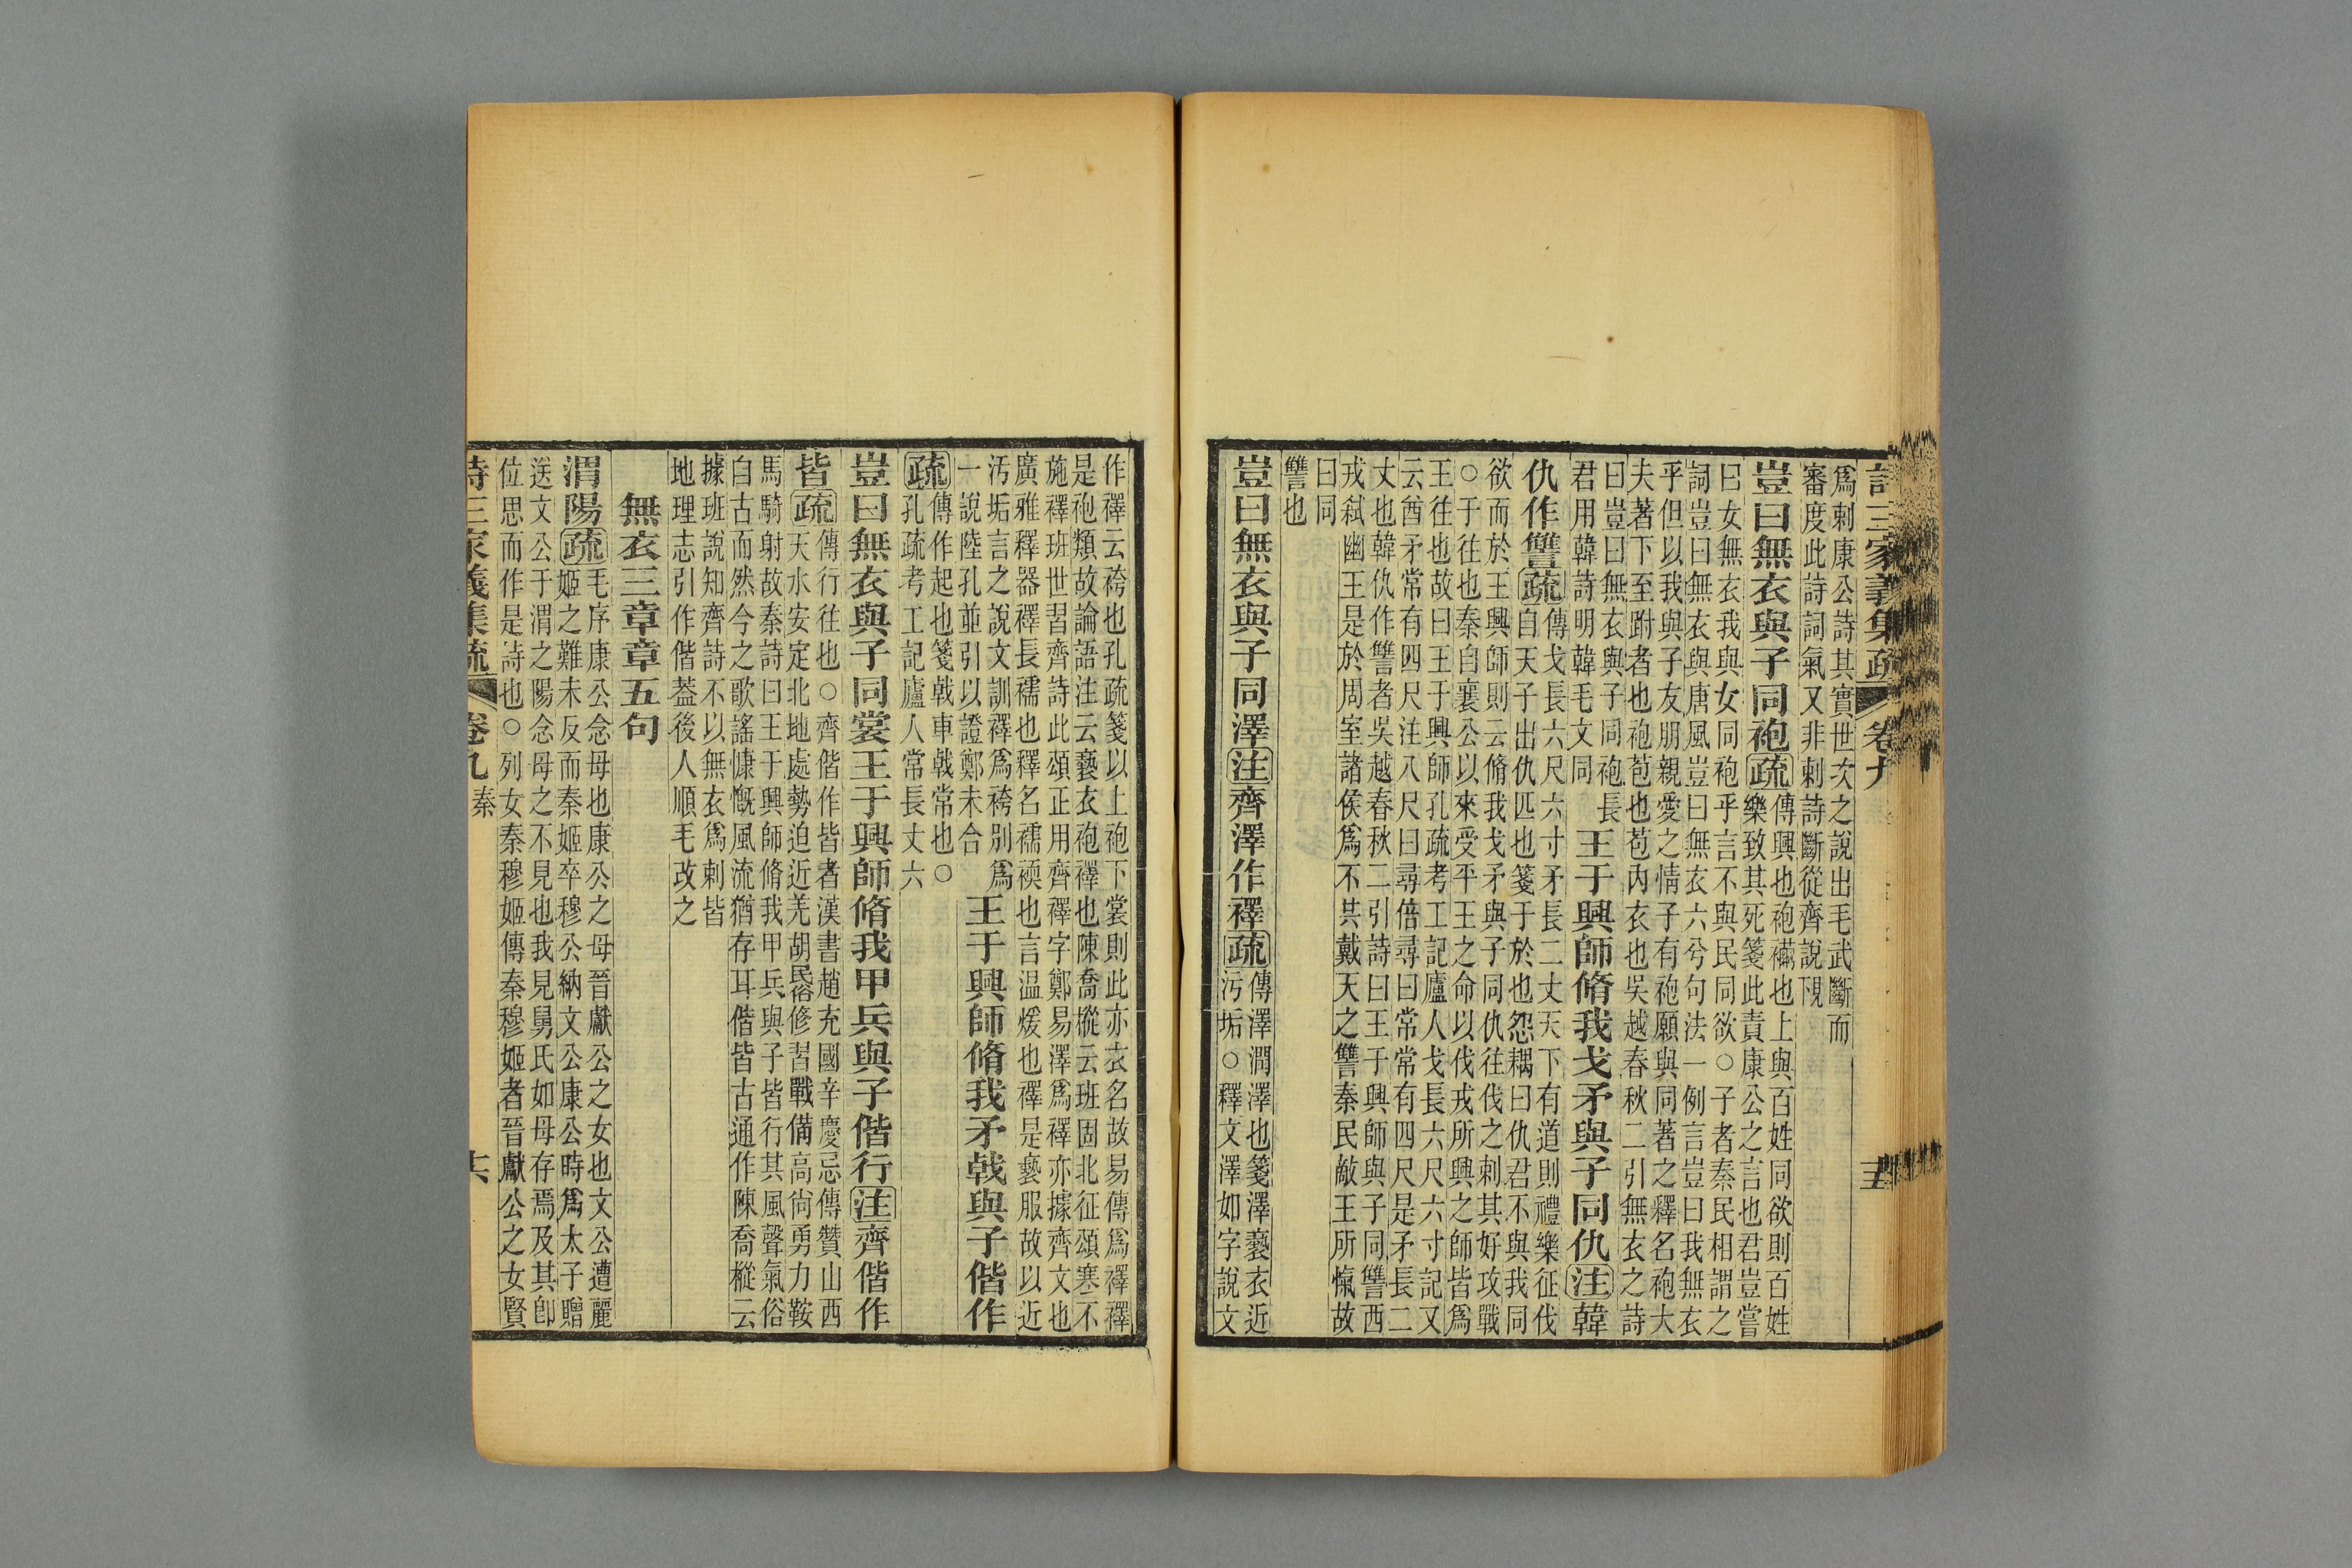 詩三家義集疏 卷九 十五
爲刺康公詩其實世次之說出毛武斷而
審度此詩詞氣又非刺詩斷從齊說
豈曰無衣與子同袍疏
傳興也袍襺也上與百姓同欲則百姓
樂致其死箋此責康公之言也君豈嘗
曰女無衣我與女同袍乎言不與民同欲○子者秦民相謂之
詞豈曰無衣與唐風豈曰無衣六兮句法一例言豈曰我無衣
乎但以我與子友朋親愛之情子有袍願與同著之釋名袍大
夫著下至跗者也袍苞也苞內衣也吳越春秋二引無衣之詩
曰豈曰無衣與子同袍長
君用韓詩明韓毛文同
王于興師脩我戈矛與子同仇注韓
仇作讐疏
傳戈長六尺六寸矛長二丈天下有道則禮樂征伐
自天子出仇匹也箋于於也怨耦曰仇君不與我同
欲而於王興師則云脩我戈矛與子同仇往伐之刺其好攻戰
○于往也秦自襄公以來受平王之命以伐戎所興之師皆爲
王往也故曰王于興師孔疏考工記廬人戈長六尺六寸記又
云酋矛常有四尺注八尺曰尋倍尋曰常常有四尺是矛長二
丈也韓仇作讐者吳越春秋二引詩曰王于興師與子同讐西
戎弒幽王是於周室諸侯爲不共戴天之讐秦民敵王所愾故
曰同
讐也
豈曰無衣與子同澤注齊澤作襗疏
傳澤潤澤也箋澤褻衣近
污垢○釋文澤如字說文
作襗云袴也孔疏箋以上袍下裳則此亦衣名故易傳爲襗襗
是袍類故論語注云褻衣袍襗也陳喬樅云班固北征頌寒不
施襗班世習齊詩此頌正用齊襗字鄭易澤爲襗亦據齊文也
廣雅釋器襗長襦也釋名襦䙝也言温煖也襗是褻服故以近
汚垢言之說文訓襗爲袴別爲
一說陸孔並引以證鄭未合
王于興師脩我矛戟與子偕作
疏
傳作起也箋戟車戟常也○
孔疏考工記廬人常長丈六
豈曰無衣與子同裳王于興師脩我甲兵與子偕行注齊偕作
皆疏
傳行往也○齊偕作皆者漢書趙充國辛慶忌傳贊山西
天水安定北地處勢迫近羌胡民俗修習戰備高尚勇力鞍
馬騎射故秦詩曰王于興師脩我甲兵與子皆行其風聲氣俗
自古而然今之歌謠慷慨風流猶存耳偕皆古通作陳喬樅云
據班說知齊詩不以無衣爲刺皆
地理志引作偕葢後人順毛改之
無衣三章章五句
渭陽疏
毛序康公念母也康公之母晉獻公之女也文公遭麗
姬之難未反而秦姬卒穆公納文公康公時爲太子贈
送文公于渭之陽念母之不見也我見舅氏如母存焉及其卽
位思而作是詩也○列女秦穆姬傳秦穆姬者晉獻公之女賢
詩三家義集疏 卷九 秦 十六